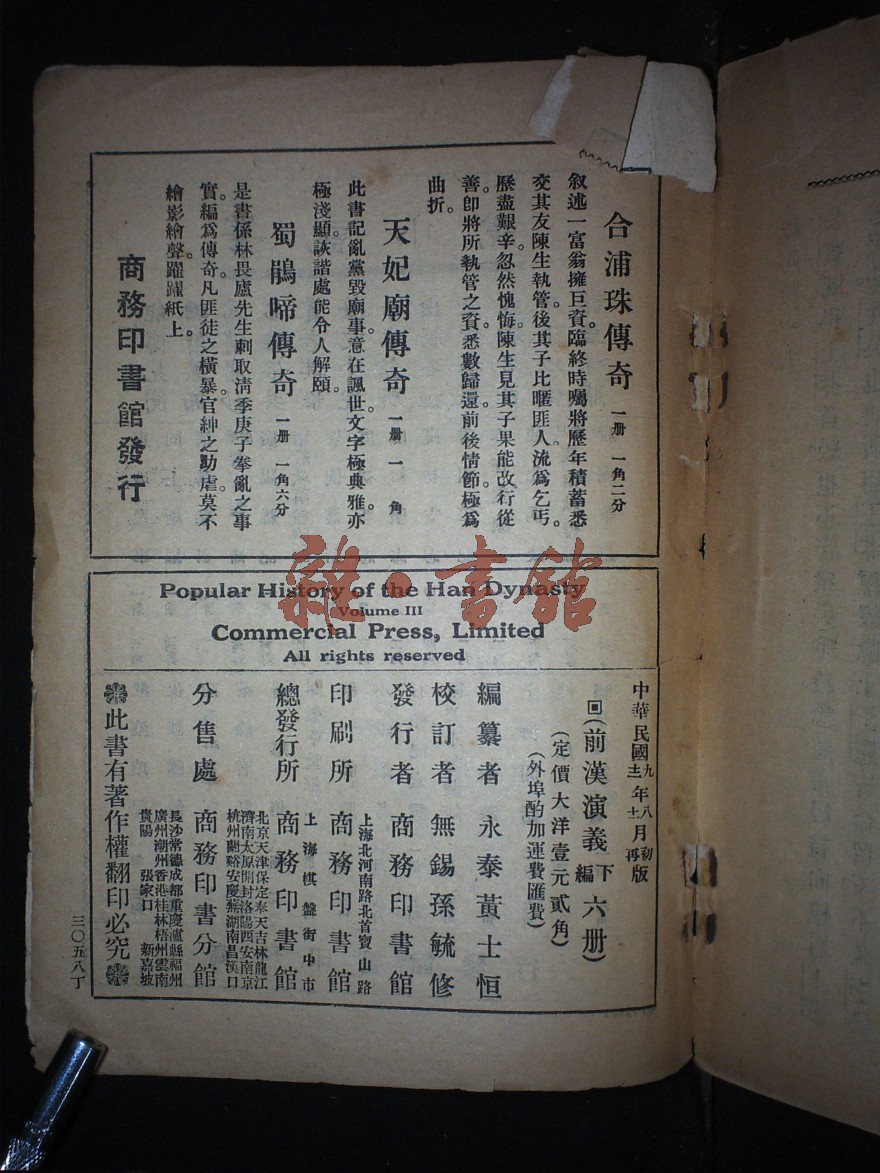 合浦珠傳奇 一册 一角二分
叙述一富翁擁巨資。臨終時囑將歷年積蓄悉
交其友陳生執管。後其子比暱匪人。流爲乞丐。
歷盡艱辛。忽然愧悔。陳生見其子果能改行從
善。卽將所執管之資。悉數歸還。前後情節。極爲
曲折。
天妃廟傳奇 一册 一角
此書記亂黨毀廟事。意在諷世。文字極典雅。亦
極淺顯。詼諧處能令人解頤。
蜀鵑啼傳奇 一册 一角六分
是書係林畏廬先生刺取淸季庚子拳亂之事
實。編爲傳奇。凡匪徒之橫暴。官紳之助虐。莫不
繪影繪聲。躍躍紙上。
商務印書館發行
Popular History of the Han Dynasty
Volume III
Commercial Press, Limited
All rights reserved
中華民國九年八月初版
十二 十二 再
回(前漢演義下編六册)
(定價大洋壹元貳角)
(外埠酌加運費匯費)
編纂者 永泰黃士恒
校訂者 無錫孫毓修
發行者 商務印書館
上海北河南路北首寶山路
印刷所 商務印書館
上海棋盤街中市
總發行所 商務印書館
北京天津保定奉天吉林龍江
濟南太原開封洛陽西安南京
杭州蘭谿安慶蕪湖南昌漢口
分售處 商務印書分館
長沙常德成都重慶瀘縣福州
廣州潮州香港桂林梧州雲南
貴陽 張家口 新嘉坡
此書有著作權翻印必究
三〇五八丁
雜·書館